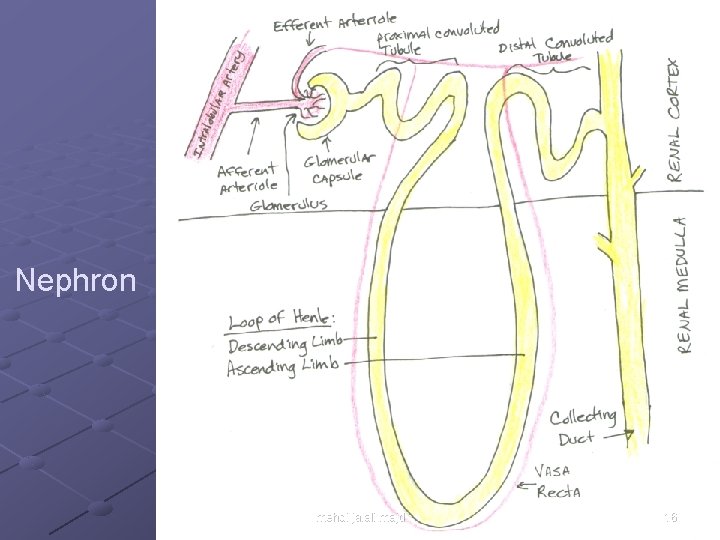 Efferent Arteriole
proximal convoluted
Tubule
Distal Convoluted
Tubule
Intralobular Artery
Afferent
Arteriole
Glomerular
Capsule
Glomerulus
RENAL CORTEX
RENAL MEDULLA
Nephron
Loop of Henle:
Descending Limb
Ascending Limb
Collecting
Duct
Vasa
Recta
16